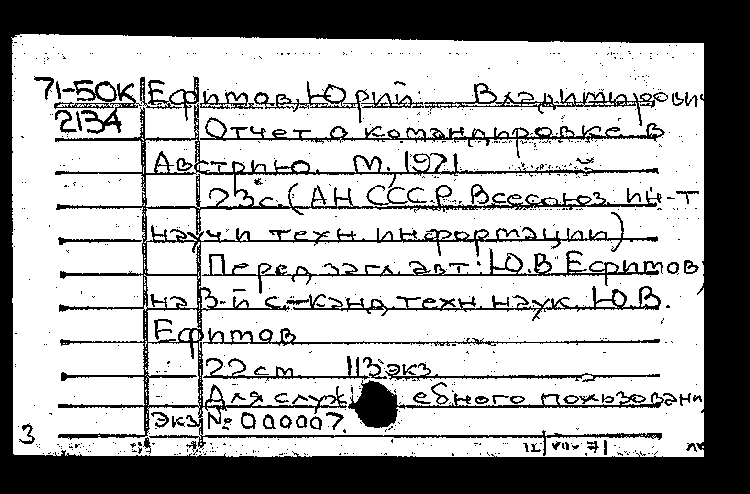 71-50к Ефимов, Юрий Владимирович
2134 Отчет о командировке в
Австрию. М., 1971
23с. (АН СССР. Всесоюз. ин-т
науч. и техн. информации)
Перед загл. авт: Ю.В Ефимов,
на 3-й с-канд. техн. наук. Ю.В.
Ефимов
22 см 113 экз.
Для служебного пользовани
экз № 000007.
3